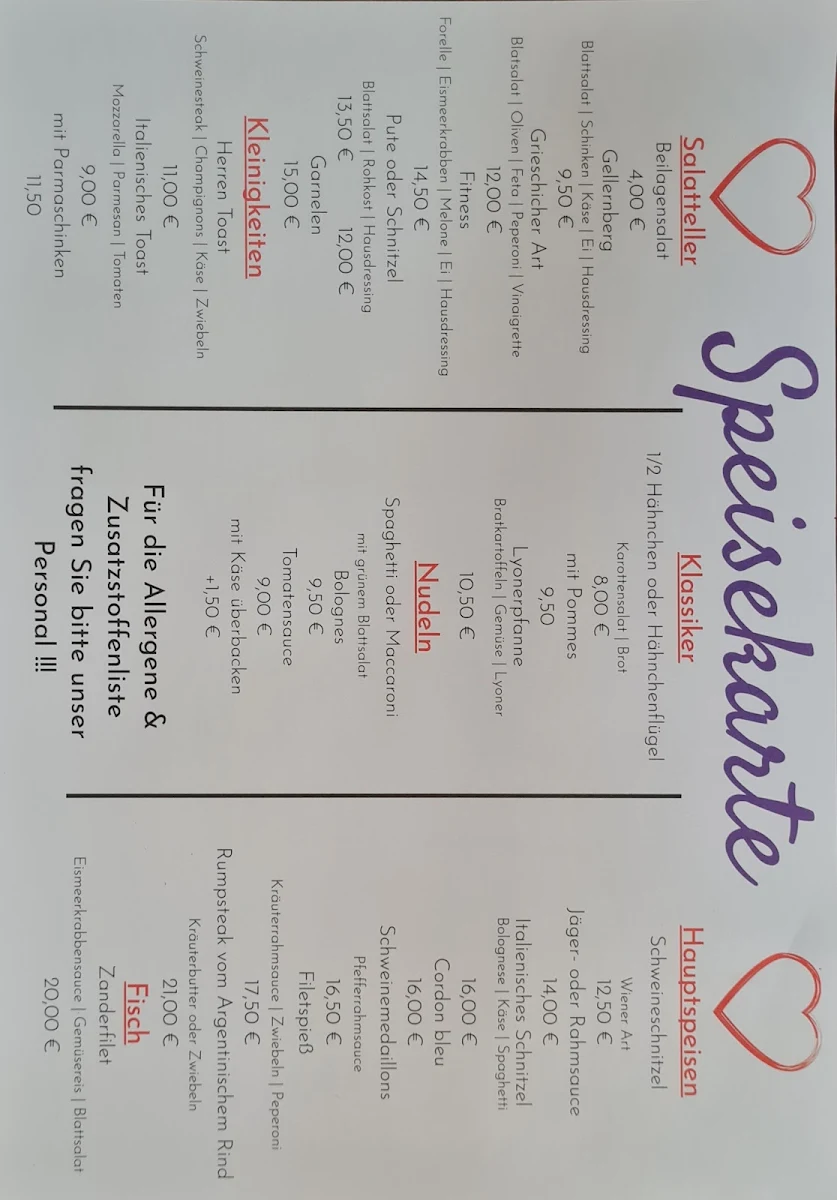 Speisekarte
Salatteller
Beilagensalat
4,00 €
Gellernberg
Blattsalat | Schinken | Käse | Ei | Hausdressing
9,50 €
Grieschicher Art
Blatsalat | Oliven | Feta | Peperoni | Vinaigrette
12,00 €
Fitness
Forelle | Eismeerkrabben | Melone | Ei | Hausdressing
14,50 €
Pute oder Schnitzel
Blattsalat | Rohkost | Hausdressing
13,50 € 12,00 €
Garnelen
15,00 €
Kleinigkeiten
Herren Toast
Schweinesteak | Champignons | Käse | Zwiebeln
11,00 €
Italienisches Toast
Mozzarella | Parmesan | Tomaten
9,00 €
mit Parmaschinken
11,50
Klassiker
1/2 Hähnchen oder Hähnchenflügel
Karottensalat | Brot
8,00 €
mit Pommes
9,50
Lyonerpfanne
Bratkartoffeln | Gemüse | Lyoner
10,50 €
Nudeln
Spaghetti oder Maccaroni
mit grünem Blattsalat
Bolognes
9,50 €
Tomatensauce
9,00 €
mit Käse überbacken
+1,50 €
Für die Allergene &
Zusatzstoffenliste
fragen Sie bitte unser
Personal !!!
Hauptspeisen
Schweineschnitzel
Wiener Art
12,50 €
Jäger- oder Rahmsauce
14,00 €
Italienisches Schnitzel
Bolognese | Käse | Spaghetti
16,00 €
Cordon bleu
16,00 €
Schweinemedaillons
Pfefferrahmsauce
16,50 €
Filetspieß
Kräuterrahmsauce | Zwiebeln | Peperoni
17,50 €
Rumpsteak vom Argentinischem Rind
Kräuterbutter oder Zwiebeln
21,00 €
Fisch
Zanderfilet
Eismeerkrabbensauce | Gemüsereis | Blattsalat
20,00 €